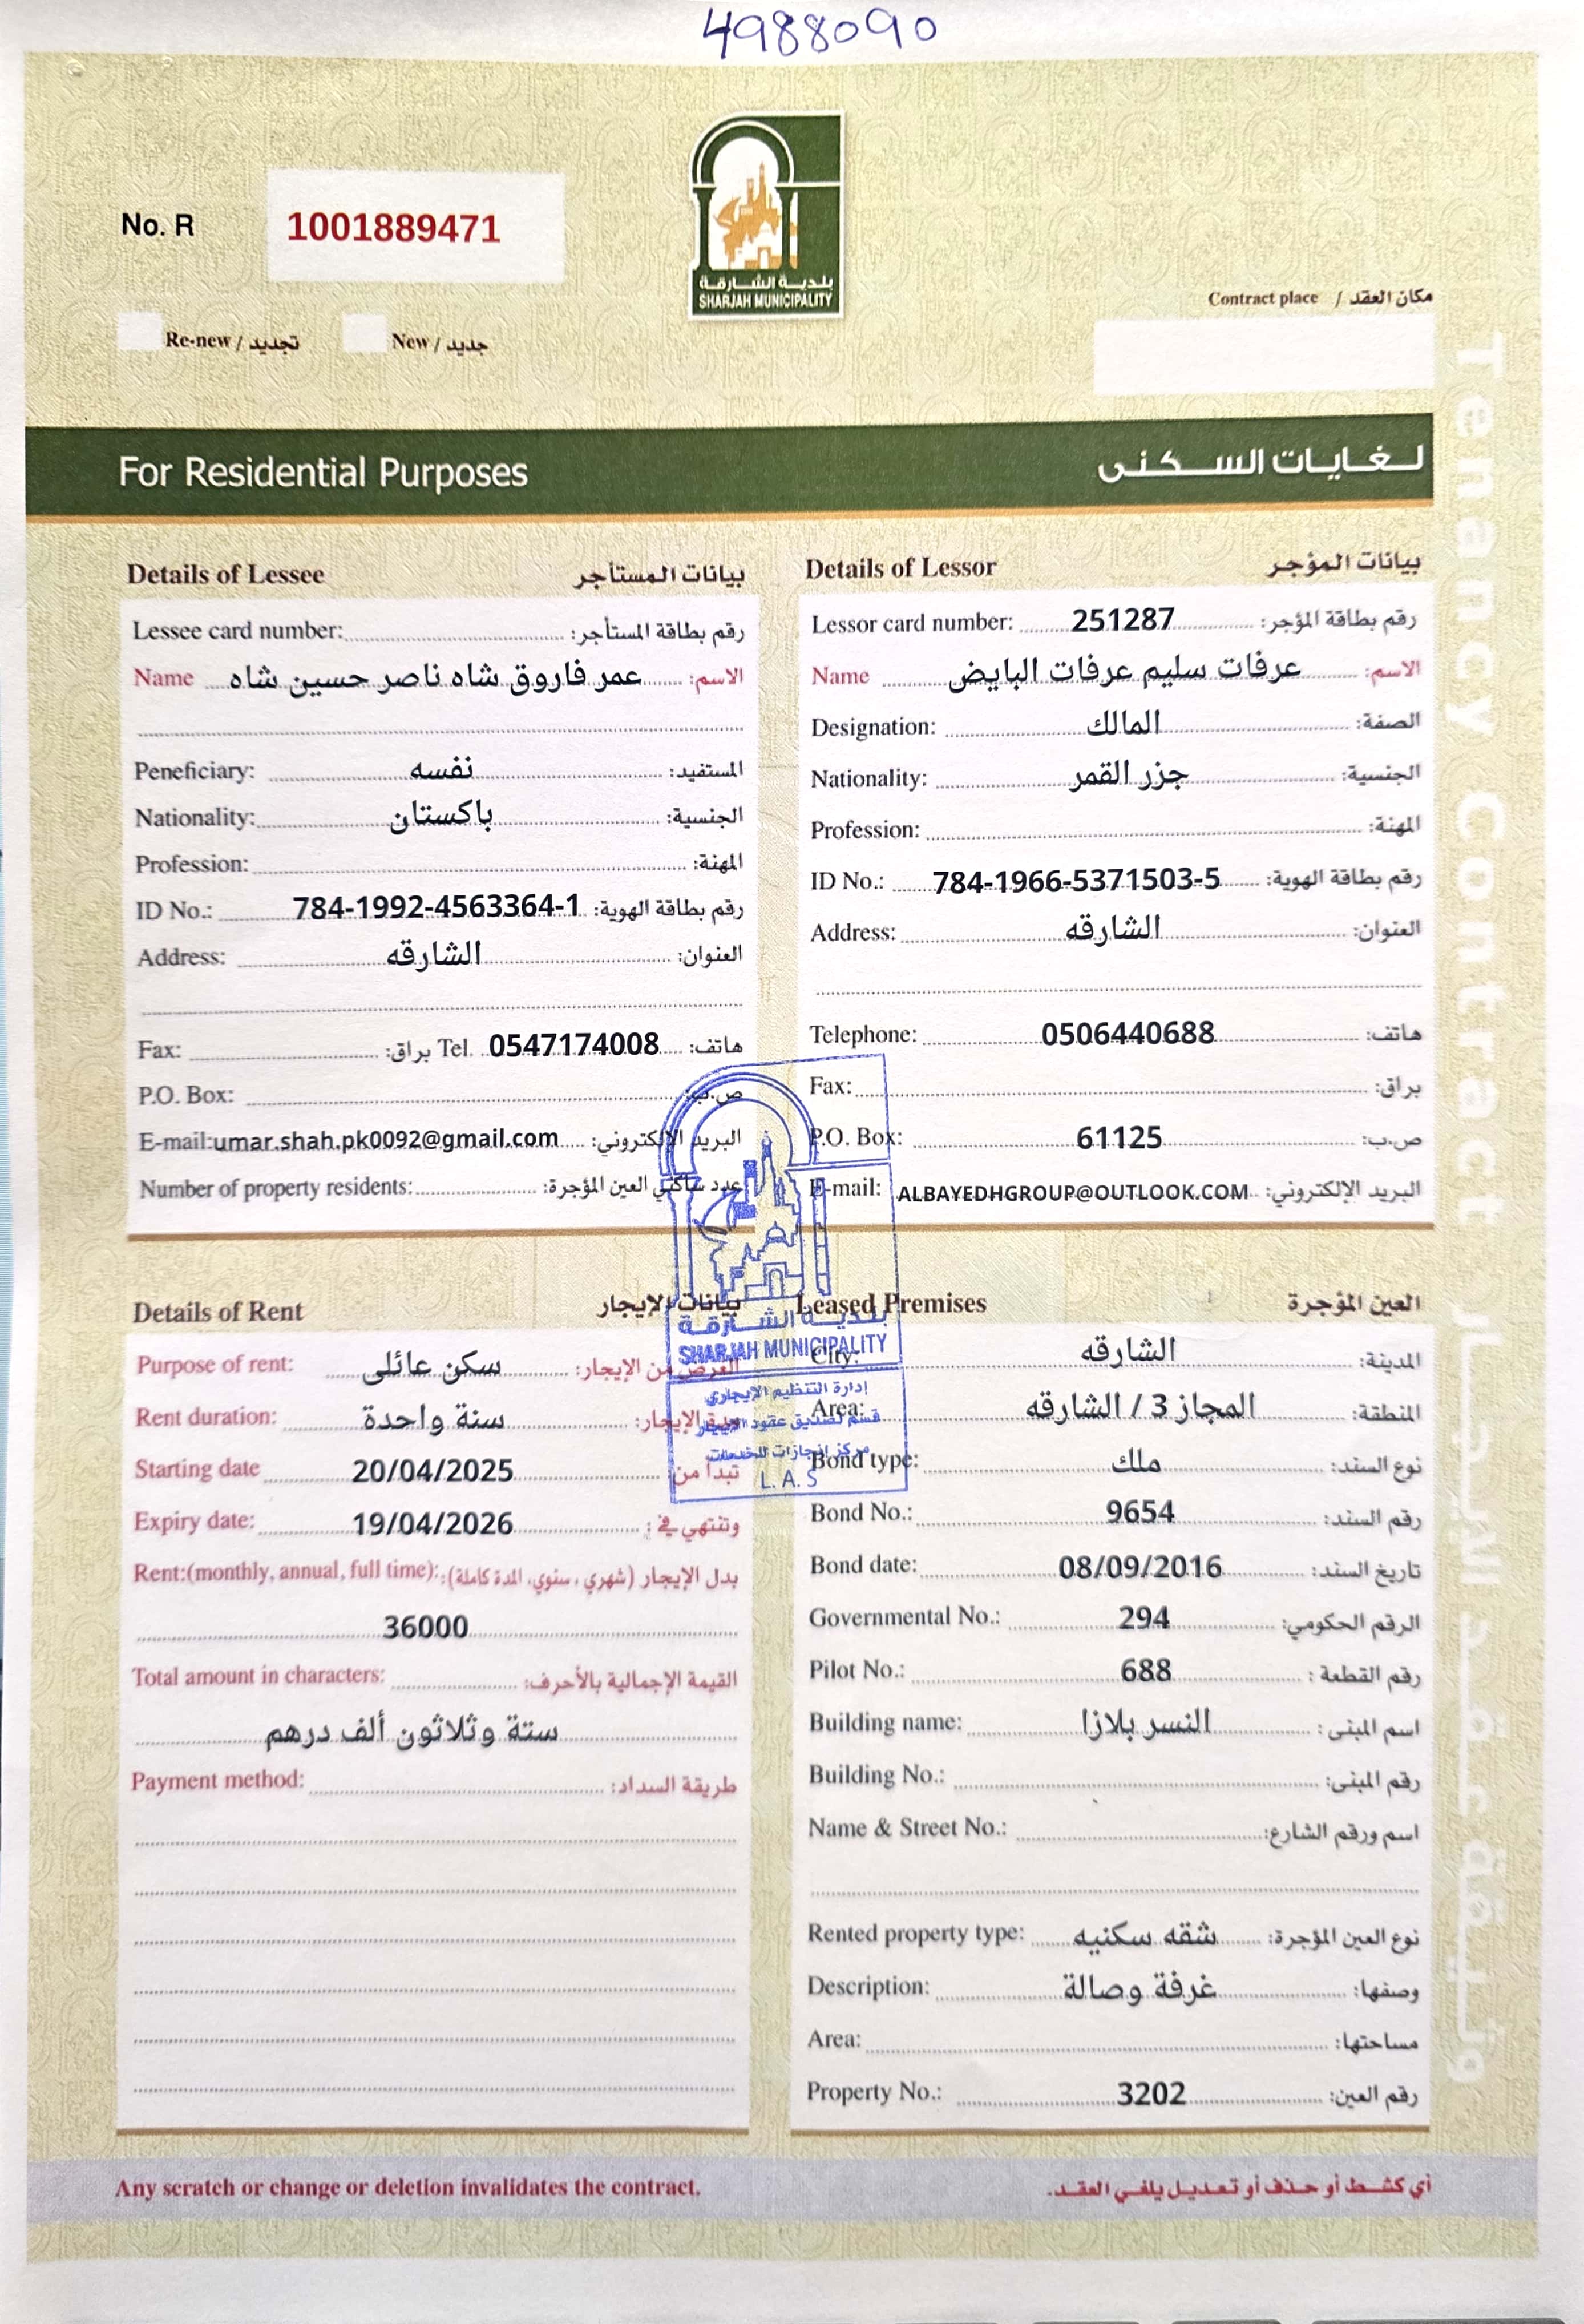 4988090
No. R 1001889471
بلدية الشارقة
SHARJAH MUNICIPALITY
Contract place / مكان العقد
Re-new / تجديد New / جديد
For Residential Purposes لغايات السكنى
Details of Lessee بيانات المستأجر
Lessee card number: رقم بطاقة المستأجر:
Name عمر فاروق شاه ناصر حسين شاه الاسم:
Peneficiary: نفسه المستفيد:
Nationality: باكستان الجنسية:
Profession: المهنة:
ID No.: 784-1992-4563364-1 رقم بطاقة الهوية:
Address: الشارقه العنوان:
Fax: براق: Tel. 0547174008 هاتف:
P.O. Box: ص.ب:
E-mail: umar.shah.pk0092@gmail.com البريد الإلكتروني:
Number of property residents: عدد ساكني العين المؤجرة:
Details of Lessor بيانات المؤجر
Lessor card number: 251287 رقم بطاقة المؤجر:
Name عرفات سليم عرفات البايض الاسم:
Designation: المالك الصفة:
Nationality: جزر القمر الجنسية:
Profession: المهنة:
ID No.: 784-1966-5371503-5 رقم بطاقة الهوية:
Address: الشارقه العنوان:
Telephone: 0506440688 هاتف:
Fax: براق:
P.O. Box: 61125 ص.ب:
E-mail: ALBAYEDHGROUP@OUTLOOK.COM البريد الإلكتروني:
Details of Rent بيانات الإيجار
Purpose of rent: سكن عائلى الغرض من الإيجار:
Rent duration: سنة واحدة مدة الإيجار:
Starting date 20/04/2025 تبدأ من:
Expiry date: 19/04/2026 وتنتهي في:
Rent:(monthly, annual, full time): بدل الإيجار (شهري، سنوي، المدة كاملة):
36000
Total amount in characters: القيمة الإجمالية بالأحرف:
ستة وثلاثون ألف درهم
Payment method: طريقة السداد:
بلدية الشارقة
SHARJAH MUNICIPALITY
إدارة التنظيم الإيجاري
قسم تصديق عقود الايجار
مركز إنجازات للخدمات
L. A. S
Leased Premises العين المؤجرة
City: الشارقه المدينة:
Area: المجاز 3 / الشارقه المنطقة:
Bond type: ملك نوع السند:
Bond No.: 9654 رقم السند:
Bond date: 08/09/2016 تاريخ السند:
Governmental No.: 294 الرقم الحكومي:
Pilot No.: 688 رقم القطعة :
Building name: النسر بلازا اسم المبنى :
Building No.: رقم المبنى:
Name & Street No.: اسم ورقم الشارع:
Rented property type: شقه سكنيه نوع العين المؤجرة:
Description: غرفة وصالة وصفها:
Area: مساحتها:
Property No.: 3202 رقم العين:
Tenancy Contract
وثيقة عقد الإيجار
Any scratch or change or deletion invalidates the contract. أي كشط أو حذف أو تعديل يلغي العقد.